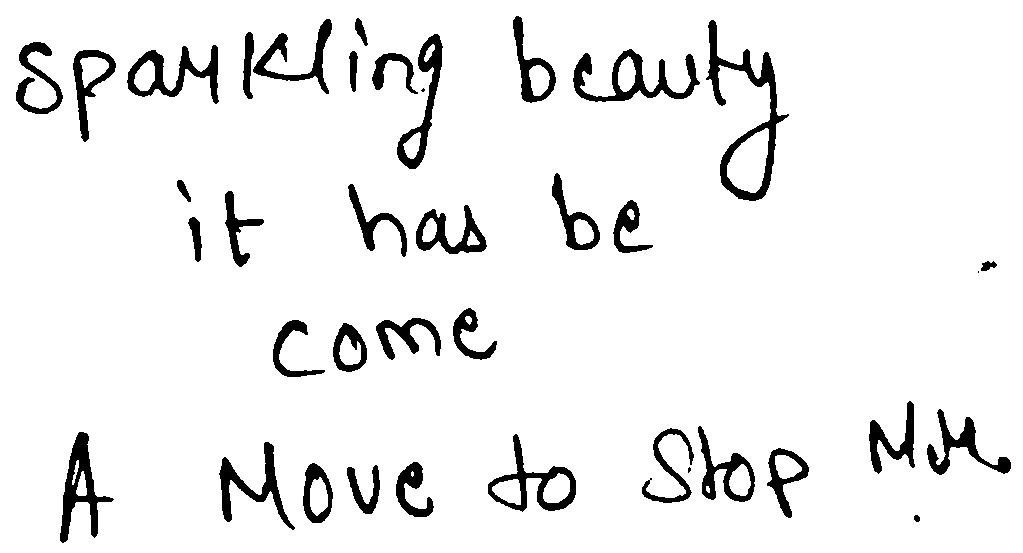 sparkling beauty
it has be
come
A Move to Stop Mr.